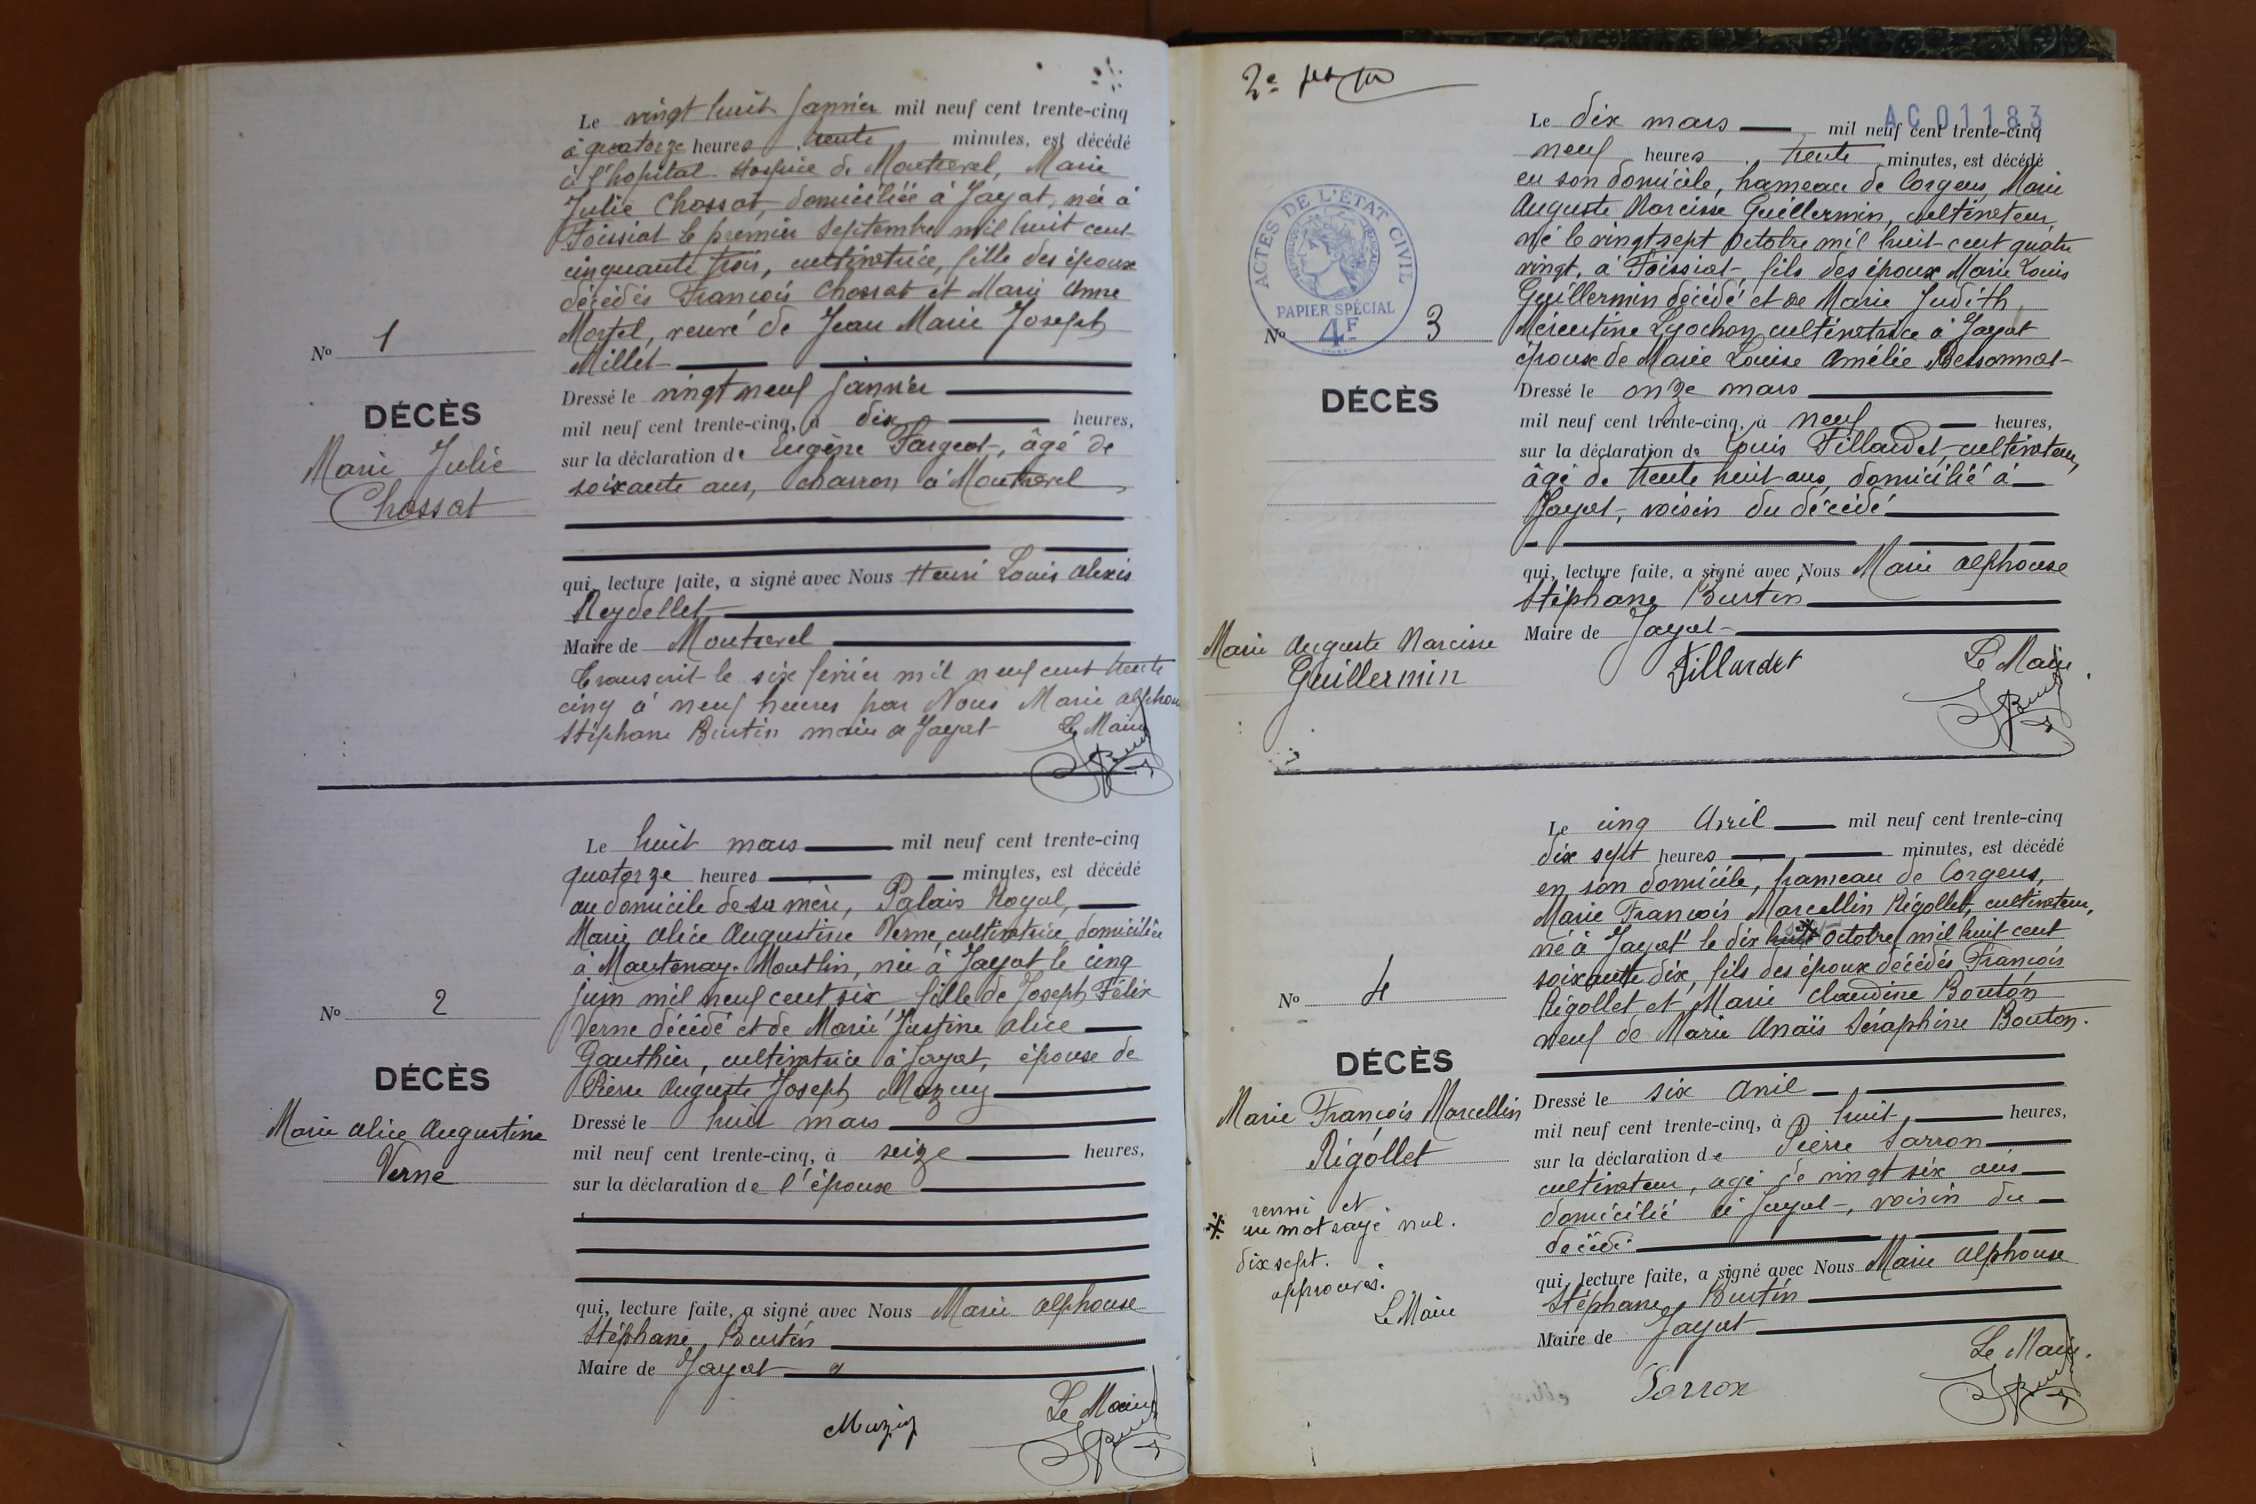 Le vingt huit Janvier mil neuf cent trente-cinq
à quatorze heures trente minutes, est décédé
à l'hopital-hospice de Montrevel, Marie
Julie Chossat, domiciliée à Jayat, née à
Foissiat le premier Septembre mil huit cent
cinquante trois, cultivatrice, fille des époux
décédés François Chossat et Marie Anne
Mortel, veuve de Jean Marie Joseph
Millet
Dressé le vingt neuf Janvier
mil neuf cent trente-cinq, à dix heures,
sur la déclaration de Eugène Fargeot, âgé de
soixante ans, charron à Montrevel
qui, lecture faite, a signé avec Nous Henri Louis Alexis
Reydellet
Maire de Montrevel
Transcrit le six février mil neuf cent trente
cinq à neuf heures par Nous Marie Alphonse
Stéphane Burtin maire à Jayat Le Maire
No 1
DÉCÈS
Marie Julie
Chossat
Le huit mars mil neuf cent trente-cinq
quatorze heures minutes, est décédé
au domicile de sa mère, Palais Royal,
Marie Alice Augustine Verne, cultivatrice, domiciliée
à Mantenay-Montlin, née à Jayat le cinq
juin mil neuf cent six fille de Joseph Félix
Verne décédé et de Marie Justine Alice
Gauthier, cultivatrice à Jayat, épouse de
Pierre Auguste Joseph Mazuy
Dressé le huit mars
mil neuf cent trente-cinq, à seize heures,
sur la déclaration de l'époux
qui, lecture faite, a signé avec Nous Marie Alphonse
Stéphane Burtin
Maire de Jayat
Le Maire
No 2
DÉCÈS
Marie Alice Augustine
Verne
2e
AC01183
Le dix mars mil neuf cent trente-cinq
neuf heures trente minutes, est décédé
en son domicile, hameau de Corgeus, Marie
Auguste Narcisse Guillermin, cultivateur,
né le vingt sept Octobre mil huit cent quatre
vingt, à Foissiat, fils des époux Marie Louis
Guillermin décédé et de Marie Judith
Lyochon cultivatrice à Jayat
époux de Marie Louise Amélie Bessonnat
Dressé le onze mars
mil neuf cent trente-cinq, à neuf heures,
sur la déclaration de Louis Tillardet, cultivateur,
âgé de trente huit ans, domicilié à
Jayat, voisin du décédé
qui, lecture faite, a signé avec Nous Marie Alphonse
Stéphane Burtin
Maire de Jayat
Tillardet Le Maire
ACTES DE L'ÉTAT CIVIL
PAPIER SPÉCIAL
4F
No 3
DÉCÈS
Marie Auguste Narcisse
Guillermin
Le cinq Avril mil neuf cent trente-cinq
dix sept heures minutes, est décédé
en son domicile, hameau de Corgeus,
Marie François Marcellin Rigollet, cultivateur,
né à Jayat le dix huit Octobre mil huit cent
soixante dix, fils des époux décédés François
Rigollet et Marie Claudine Bouton
veuf de Marie Anaïs Séraphine Bouton.
Dressé le six Avril
mil neuf cent trente-cinq, à huit heures,
sur la déclaration de Pierre Sarron
cultivateur, agé de vingt six ans
domicilié à Jayat, voisin du
décédé.
qui, lecture faite, a signé avec Nous Marie Alphonse
Stéphane Burtin
Maire de Jayat
Le Maire.
Sarron
No 4
DÉCÈS
Marie François Marcellin
Rigollet
renvoi et
* un mot rayé nul.
dix sept.
approuvés.
Le Maire